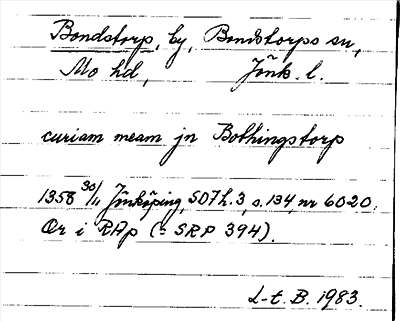 Bondstorp, by, Bondstorps sn,
Mo hd, Jönk. l.
curiam meam jn Bothingstorp
1358 30/11 Jönköping, SD7 h.3, s.134, nr 6020.
Or i RAp (= SRP 394).
L-t. B. 1983.